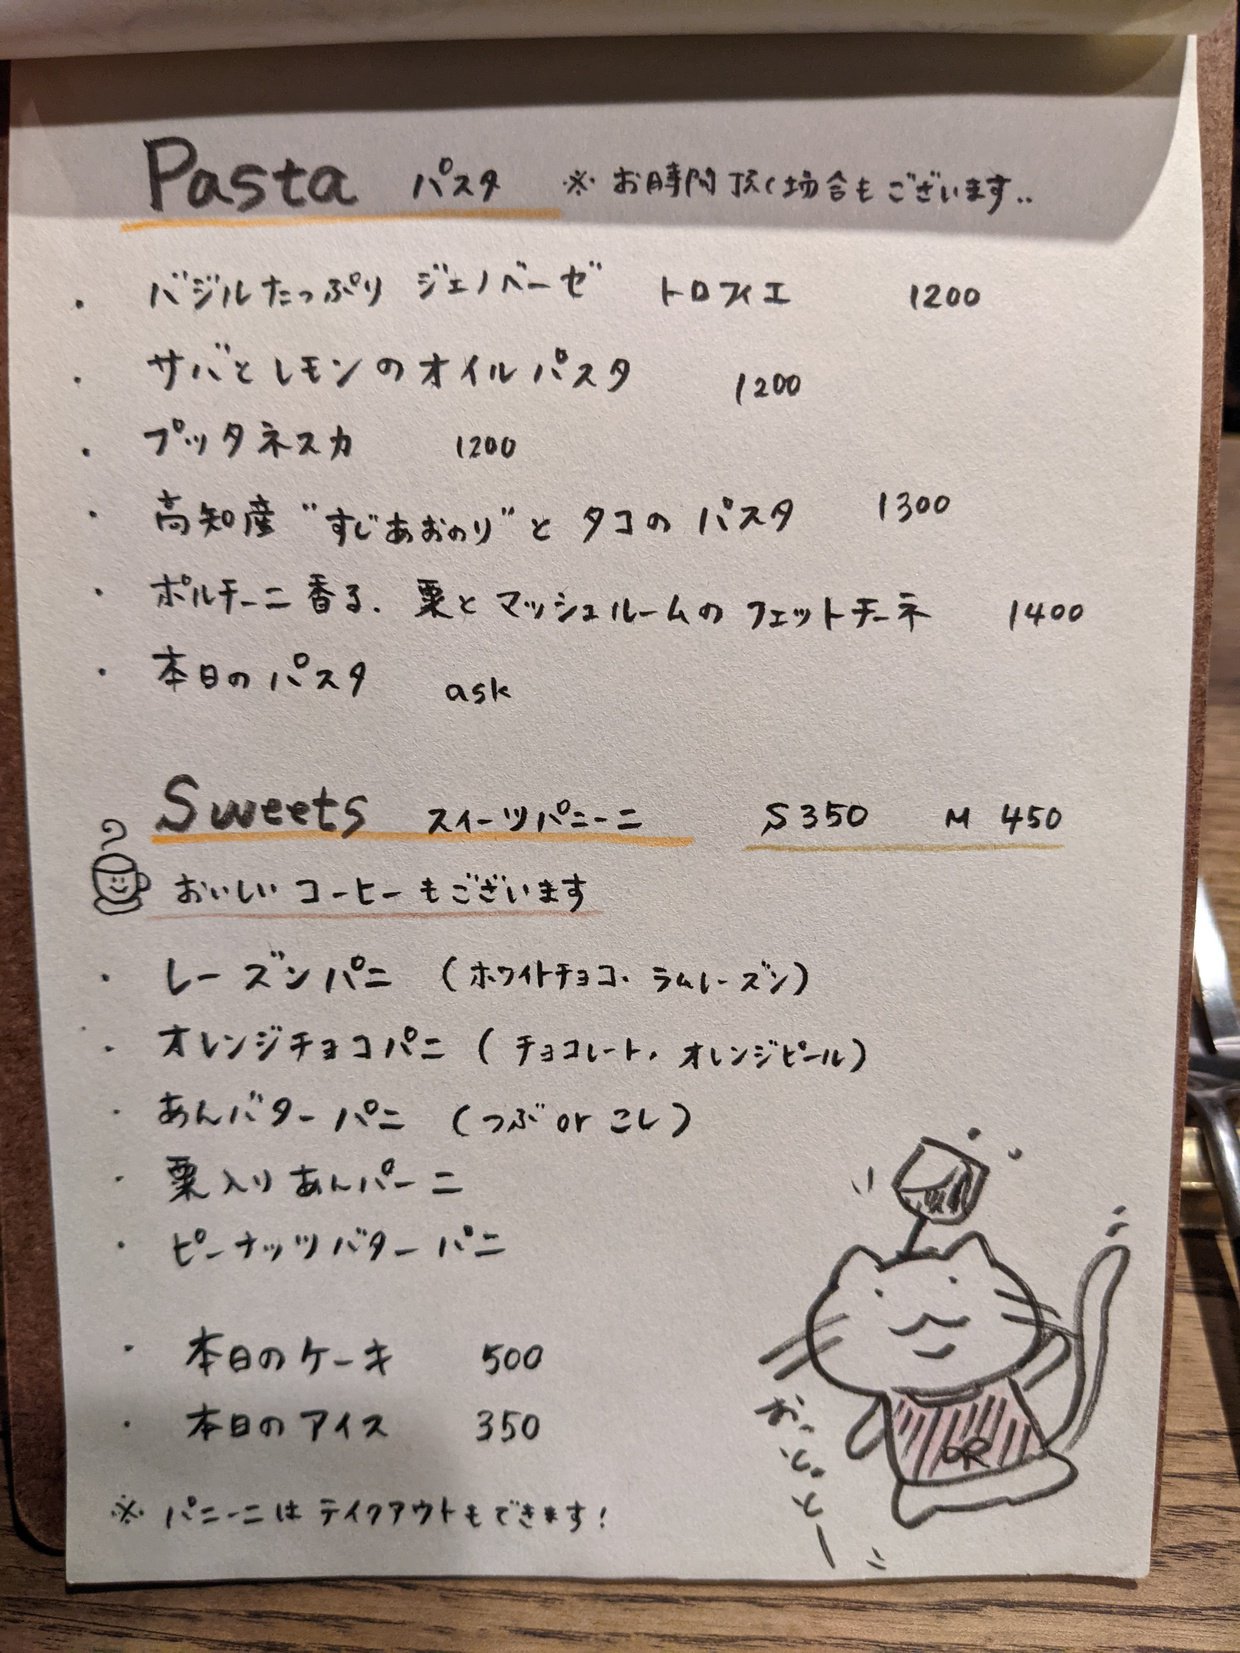 Pasta パスタ ※ お時間頂く場合もございます..
・ バジルたっぷり ジェノベーゼ トロフィエ 1200
・ サバとレモンのオイルパスタ 1200
・ プッタネスカ 1200
・ 高知産"すじあおのり"と タコの パスタ 1300
・ ポルチーニ香る、栗と マッシュルームの フェットチーネ 1400
・ 本日の パスタ ask
Sweets スイーツパニーニ S 350 M 450
おいしい コーヒーもございます
・ レーズンパニ (ホワイトチョコ・ラムレーズン)
・ オレンジチョコパニ (チョコレート・オレンジピール)
・ あんバターパニ (つぶ or こし)
・ 栗入りあんパーニ
・ ピーナッツバターパニ
・ 本日のケーキ 500
・ 本日のアイス 350
※ パニーニは テイクアウトもできます!
おっとっとー
R